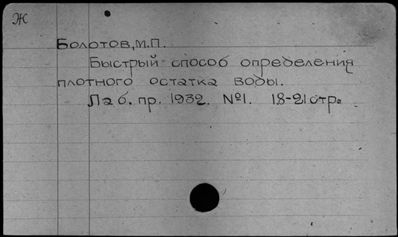 Ж
Болотов, М.П.
Быстрый способ определения
плотного остатка воды.
Лаб. пр. 1932. №1. 18-21 стр.